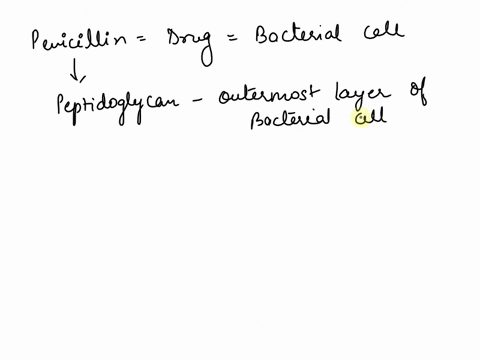 Penicillin = Drug = Bacterial cell
↓
Peptidoglycan - outermost layer of
Bacterial cell